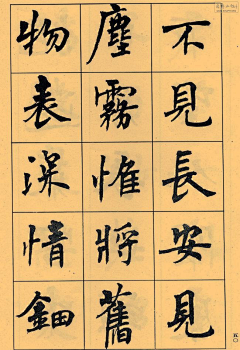 不見長安見
塵霧惟將舊
物表深情鈿
五〇